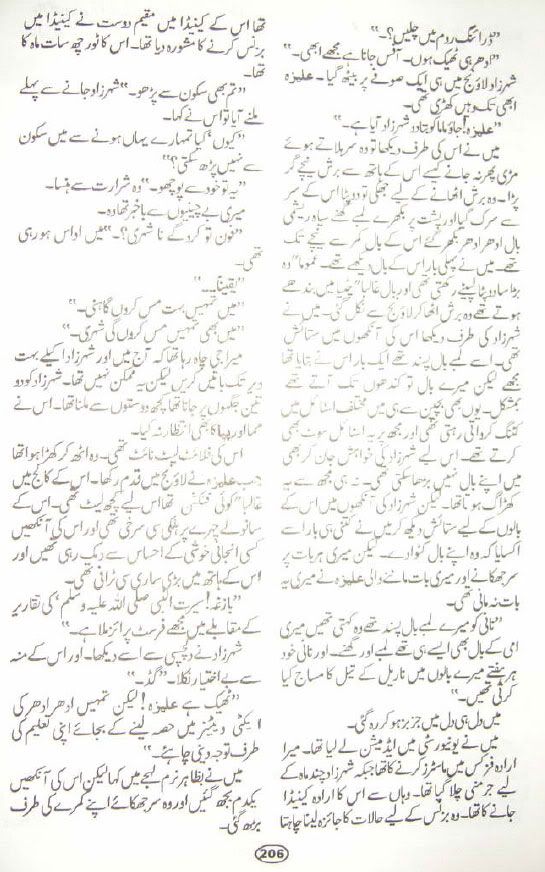 ”ڈرائنگ روم میں چلیں؟۔“
”ادھر ہی ٹھیک ہوں۔ آفس جانا ہے مجھے ابھی۔“
شہرزاد لاؤنج میں ہی ایک صوفے پر بیٹھ گیا۔ علیزہ
ابھی تک وہیں کھڑی تھی۔
”علیزہ! جاؤ ماما کو بتا دو شہرزاد آیا ہے۔“
میں نے اس کی طرف دیکھا تو وہ سر ہلاتے ہوئے
مڑی پھر نہ جانے کیسے اس کے ہاتھ سے برش نیچے گر
پڑا۔ وہ برش اٹھانے کے لیے جھکی تو دوپٹا اس کے سر
سے سرک گیا اور پشت پر بکھرے لمبے گھنے سیاہ ریشمی
بال ادھر ادھر بکھر گئے اس کے بال کمر سے نیچے تک
تھے۔ میں نے پہلی بار اس کے بال دیکھے تھے۔ عموما“ وہ
بڑا سا دوپٹا لپیٹے رکھتی تھی اور بال غالبا“ چٹیا میں بندھے
ہوتے تھے وہ برش اٹھا کر لاؤنج سے نکل گئی۔ میں نے
شہرزاد کی طرف دیکھا اس کی آنکھوں میں ستائش
تھی۔ اسے لمبے بال پسند تھے ایک بار اس نے بتایا تھا
مجھے لیکن میرے بال تو کندھوں تک آتے تھے
بمشکل۔ یوں بھی بچپن سے ہی میں مختلف اسٹائل میں
کٹنگ کرواتی رہتی تھی اور مجھ پر یہ اسٹائل سوٹ بھی
کرتے تھے۔ اس لیے شہرزاد کی خواہش جان کر بھی
میں اپنے بال نہیں بڑھا سکتی تھی۔ نہ ہی مجھ سے یہ
کھڑاگ ہوتا تھا۔ لیکن شہرزاد کی آنکھوں میں اس کے
بالوں کے لیے ستائش دیکھ کر میں نے کتنی ہی بار اسے
اکسایا کہ وہ اپنے بال کٹوا دے۔ لیکن میری ہر بات پر
سر جھکانے اور میری بات ماننے والی علیزہ نے میری یہ
بات نہ مانی تھی۔
”نانی کو میرے لمبے بال پسند تھے وہ کہتی تھیں میری
امی کے بال بھی ایسے ہی تھے لمبے اور گھنے۔ اور نانی خود
ہر ہفتے میرے بالوں میں ناریل کے تیل کا مساج کیا
کرتی تھیں۔“
میں دل ہی دل میں جزبز ہو کر رہ گئی۔
میں نے یونیورسٹی میں ایڈمیشن لے لیا تھا۔ میرا
ارادہ فزکس میں ماسٹرز کرنے کا تھا جبکہ شہرزاد چند ماہ کے
لیے جرمنی چلا گیا تھا۔ وہاں سے اس کا ارادہ کینیڈا
جانے کا تھا۔ وہ بزنس کے لیے حالات کا جائزہ لینا چاہتا
تھا اس کے کینیڈا میں مقیم دوست نے کینیڈا میں
بزنس کرنے کا مشورہ دیا تھا۔ اس کا ٹور چھ سات ماہ کا
تھا۔
”تم بھی سکون سے پڑھو۔“ شہرزاد جانے سے پہلے
ملنے آیا تو اس نے کہا۔
”کیوں‘ کیا تمہارے یہاں ہونے سے میں سکون
سے نہیں پڑھ سکتی؟“
”یہ تو خود سے پوچھو۔“ وہ شرارت سے ہنسا۔
میری بے چینیوں سے باخبر تھا وہ۔
”فون تو کرو گے نا شہری؟۔“ میں اداس ہو رہی
تھی۔
”یقینا۔۔“
”میں تمہیں بہت مس کروں گا ہنی۔“
”میں بھی تمہیں مس کروں گی شہری۔“
میرا جی چاہ رہا تھا کہ آج میں اور شہرزاد اکیلے بہت
دیر تک باتیں کریں لیکن یہ ممکن نہیں تھا۔ شہرزاد کو دو
تین جگہوں پر جانا تھا کچھ دوستوں سے ملنا تھا۔ اس نے
مما اور پپا کا بھی انتظار نہ کیا۔
اس کی فلائٹ لیٹ نائٹ تھی۔ وہ اٹھ کر کھڑا ہوا تھا
جب علیزہ نے لاؤنج میں قدم رکھا۔ اس کے کالج میں
غالبا“ کوئی فنکشن تھا اس لیے کچھ لیٹ تھی۔ اس کے
سانولے چہرے پر ہلکی سی سرخی تھی اور اس کی آنکھیں
کسی انجانی خوشی کے احساس سے دمک رہی تھیں اور
اس کے ہاتھ میں بڑی ساری سی ٹرافی تھی۔
”بازغہ! سیرت النبی صلی اللہ علیہ وسلم‘ کی تقاریر
کے مقابلے میں مجھے فرسٹ پرائز ملا ہے۔“
شہرزاد نے دلچسپی سے اسے دیکھا۔ اور اس کے منہ
سے بے اختیار نکلا۔ ”گڈ۔“
”ٹھیک ہے علیزہ! لیکن تمہیں ادھر ادھر کی
ایکٹی ویٹیز میں حصہ لینے کے بجائے اپنی تعلیم کی
طرف توجہ دینی چاہئے۔“
میں نے بظاہر نرم لہجے میں کہا لیکن اس کی آنکھیں
یکدم بجھ گئیں اور وہ سر جھکائے اپنے کمرے کی طرف
بڑھ گئی۔
206